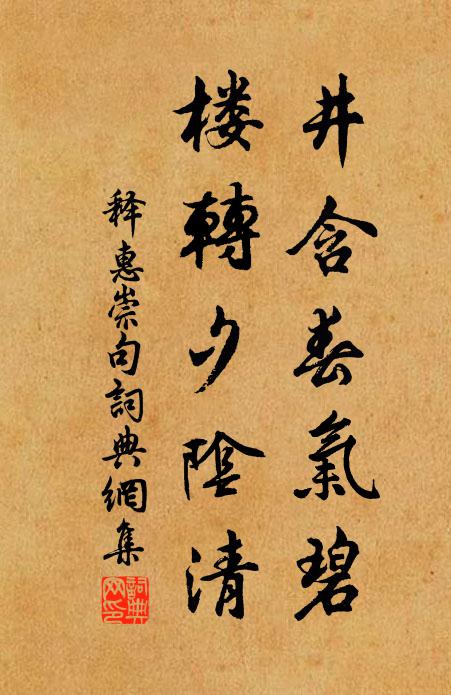 井含春氣碧
楼轉夕陰清
釋惠崇句詞典網集
詞典網印